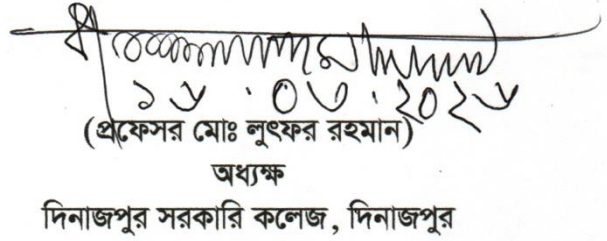 ১৬.০৩.২০২৬
(প্রফেসর মোঃ লুৎফর রহমান)
অধ্যক্ষ
দিনাজপুর সরকারি কলেজ, দিনাজপুর